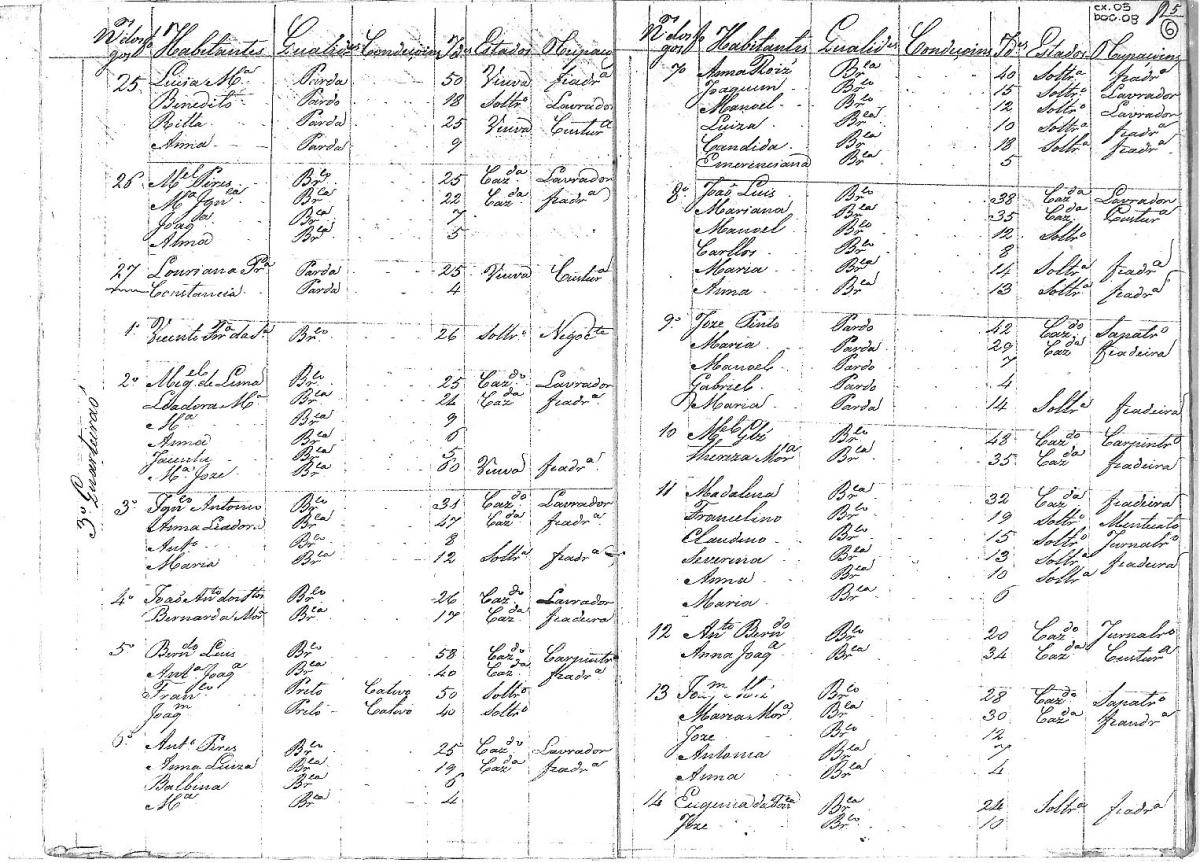 cx. 03
doc. 08
25
6
Nos dos fogos Habitantes Qualides Conduçoins Ides Estados Ocupaç
25 Luia Ma Parda 50 Viuva fiadra
Benedito Pardo 18 Soltro Lavrador
Ritta Parda 25 Viuva Custura
Anna Parda 9
26 Mel Pires Brco 25 Cazdo Lavrador
Ma Ignca Brca 22 Cazda fiadra
Joaqa Brca 7
Anna Brca 5
27 Louriana Pra Parda 25 Viuva Custura
Constancia Parda 4
3o Quarteirao
1o Vicente Frra da Sa Brco 26 Soltro Negocte
2o Migel de Lima Brco 25 Cazdo Lavrador
Izadora Ma Brca 24 Cazda fiadra
Ma Brca 9
Anna Brca 6
Jacinta Brca 5
Ma Joze Brca 60 Viuva fiadra
3o Ignco Antonio Brco 31 Cazdo Lavrador
Anna Izador Brca 47 Cazda fiadra
Anto Brco 8
Maria Brca 12 Soltra fiadra
4o João Anto dos Stos Brco 26 Cazdo Lavrador
Bernarda Mora Brca 17 Cazda fiadeira
5o Berndo Luis Brco 58 Cazdo Carpintro
Anta Joaqa Brca 40 Cazda fiadra
Franco Preto Cativo 50 Soltro
Joaqm Preto Cativo 40 Soltro
6o Anto Pires Brco 25 Cazdo Lavrador
Anna Luiza Brca 19 Cazda fiadra
Balbina Brca 6
Ma Brca 4
Nos dos fogos Habitantes Qualides Conduçoins Ides Estados Ocupaçoins
7o Anna Roiz Brca 40 Soltra fiadra
Joaquim Brco 15 Soltro Lavrador
Manoel Brco 12 Soltro Lavrador
Luiza Brca 10 Soltra fiadra
Candida Brca 18 Soltra fiadra
Emerenciana Brca 5
8o João Luis Brco 38 Cazdo Lavrador
Mariana Brca 35 Cazda Custura
Manoel Brco 12 Soltro
Carllos Brco 8
Maria Brca 14 Soltra fiadra
Anna Brca 13 Soltra fiadra
9o Joze Pinto Pardo 42 Cazdo Sapatro
Maria Parda 29 Cazda fiadeira
Manoel Pardo 7
Gabriel Pardo 4
Maria Parda 14 Soltra fiadeira
10 Mel Glz Brco 48 Cazdo Carpintro
Thereza Mora Brca 35 Cazda fiadeira
11 Madalena Brca 32 Cazda fiadeira
Francelino Brco 19 Soltro Menticato
Claudino Brco 15 Soltro Jurnalro
Severina Brca 13 Soltra fiadeira
Anna Brca 10 Soltra
Maria Brca 6
12 Anto Berndo Brco 20 Cazdo Jurnalro
Anna Joaqa Brca 34 Cazda Custura
13 Joqm Brco 28 Cazdo Sapatro
Maria Mora Brca 30 Cazda fiandra
Joze Brco 12
Antonia Brca 7
Anna Brca 4
14 Eugenia da Brca 24 Soltra fiadra
Joze Brco 10